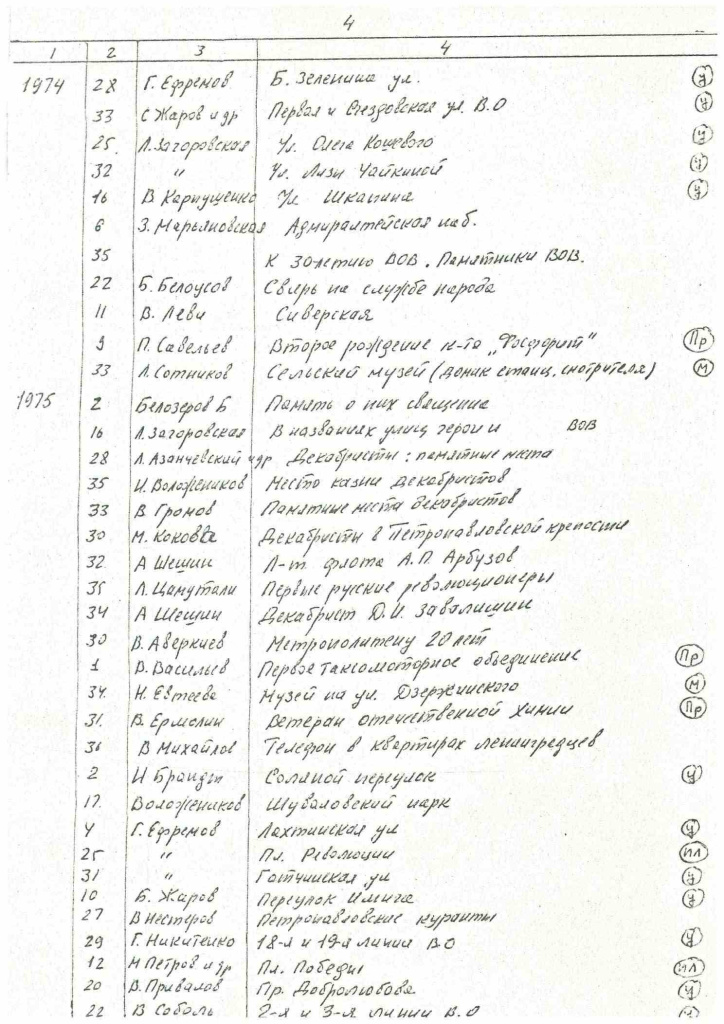 4
1 2 3 4
1974 28 Г. Ефремов Б. Зеленина ул. у
33 С Жаров и др Первая и Съездовская ул. В.О у
25. Л. Загоровская Ул. Олега Кошевого у
32 " Ул. Лизы Чайкиной у
16 В Карпущенко Ул Шкапина у
6 З. Марьяновская Адмиралтейская наб.
35 К 30-летию ВОВ. Памятники ВОВ.
22 Б. Белоусов Связь на службе народа
11 В. Леви Сиверская
9 П. Савельев Второе рождение к-та „Фосфорит" Пр
33 Л. Сотников Сельский музей (домик станц. смотрителя) м
1975 2 Белозеров Б Память о них священна
16 Л. Загоровская В названиях улиц герои ВОВ
28 Л. Азанчевский и др Декабристы: памятные места
35 И. Воложеников Место казни декабристов
33 В Громов Памятные места декабристов
30 М. Кокова Декабристы в Петропавловской крепости
32 А Шешин Л-т флота А.П. Арбузов
35 Л. Цамутали Первые русские революционеры
34 А Шешин Декабрист Д.И. Завалишин
30 В. Аверкиев Метрополитену 20 лет
1 В. Васильев Первое таксомоторное объединение Пр
34. Н. Евтеева Музей на ул. Дзержинского м
31. В. Ермолин Ветеран отечественной химии Пр
36 В Михайлов Телефон в квартирах ленинградцев
2 И Брандт Соляной переулок у
17. Воложеников Шуваловский парк
4 Г. Ефремов Лахтинская ул у
25 " Пл. Революции пл
31 " Гатчинская ул у
10 Б. Жаров Переулок Ильича у
27 В Нестеров Петропавловские куранты
29 Г. Никитенко 18-я и 19-я линии В О у
12 М Петров и др Пл. Победы пл
20 В. Привалов Пр. Добролюбова у
22 В Соболь 2-я и 3-я линии В.О у